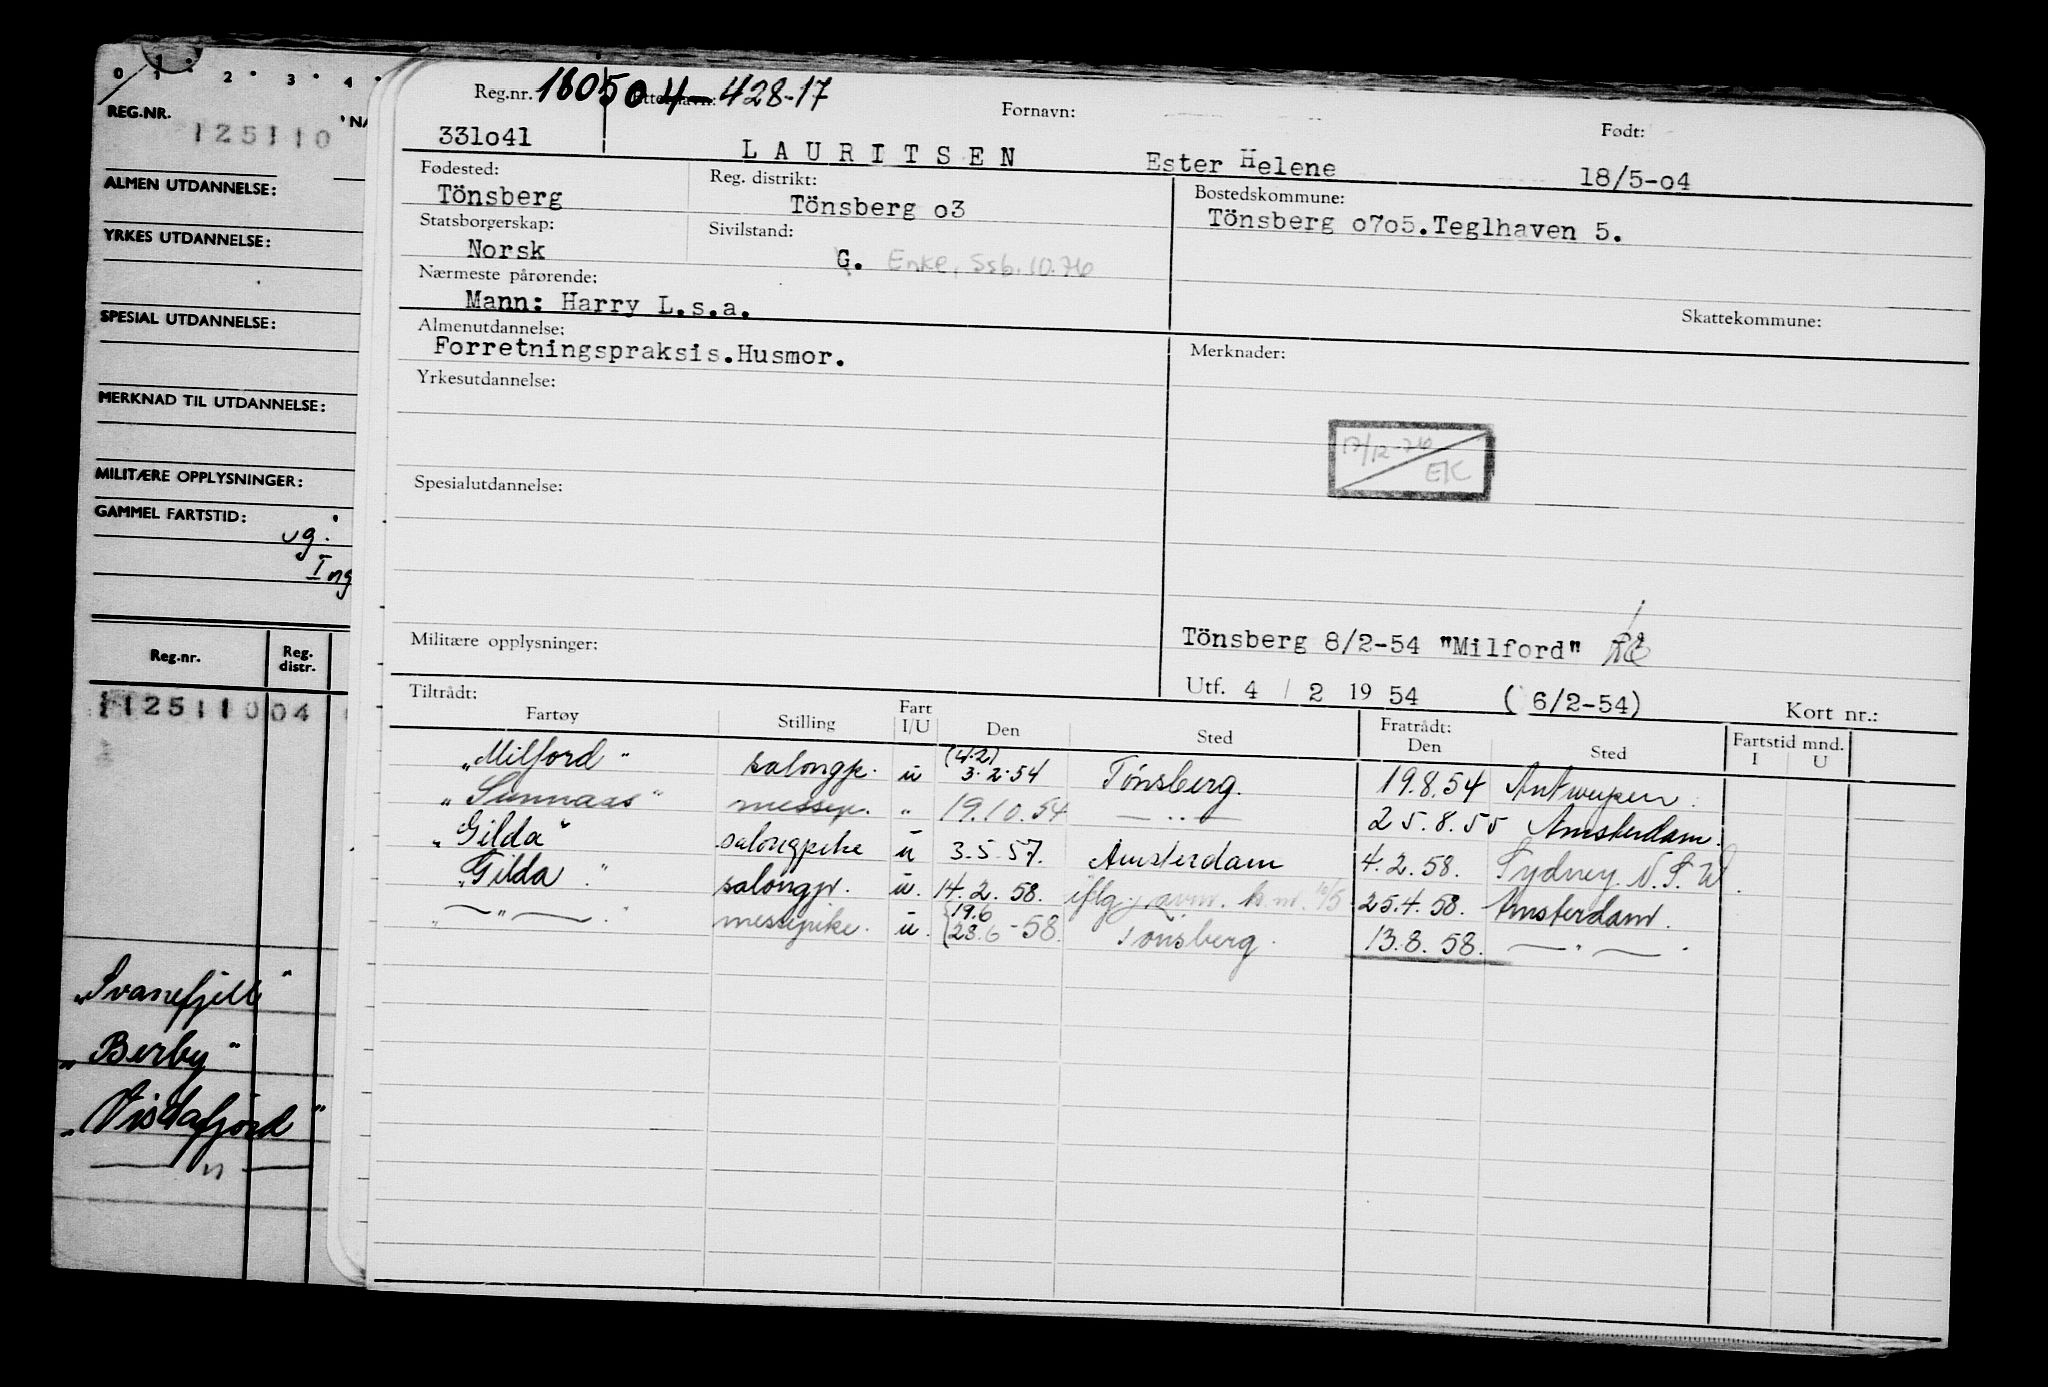 0 1 2 3 4
REG.NR.
125110
NA
ALMEN UTDANNELSE:
YRKES UTDANNELSE:
SPESIAL UTDANNELSE:
MERKNAD TIL UTDANNELSE:
MILITÆRE OPPLYSNINGER:
GAMMEL FARTSTID:
ug.
Ing
Reg.nr. Reg. distr.
125110 04
"Svanefjell"
"Berby"
"Vistafjord"
— " —
Reg.nr. 180504-428-17 Fornavn: Født:
331o41 LAURITSEN Ester Helene 18/5-o4
Fødested: Reg. distrikt: Bostedskommune:
Tönsberg Tönsberg o3 Tönsberg o7o5.Teglhaven 5.
Statsborgerskap: Sivilstand:
Norsk G. Enke, Ssb.10.76
Nærmeste pårørende:
Mann: Harry L.s.a. Skattekommune:
Almenutdannelse: Merknader:
Forretningspraksis.Husmor.
Yrkesutdannelse:
17/12-76 EK
Spesialutdannelse:
Militære opplysninger: Tönsberg 8/2-54 "Milford"
Utf. 4 / 2 19 54 ( 6/2-54) Kort nr.:
Tiltrådt: Fratrådt: Fartstid mnd.
Fartøy Stilling Fart I/U Den Sted Den Sted I U
"Milford" salongp. u (4.2) 3.2.54 Tønsberg. 19.8.54 Antwerpen.
"Sunnaas" messep. " 19.10.54 — " — 25.8.55 Amsterdam.
"Gilda" salongpike u 3.5.57. Amsterdam 4.2.58. Sydney. N.S.W.
"Gilda" salongp. u. 14.2.58. iflg. 25.4.58. Amsterdam.
" — " — " messepike. u. {19.6 28.6 -58. Tønsberg. 13.8.58. — " — .